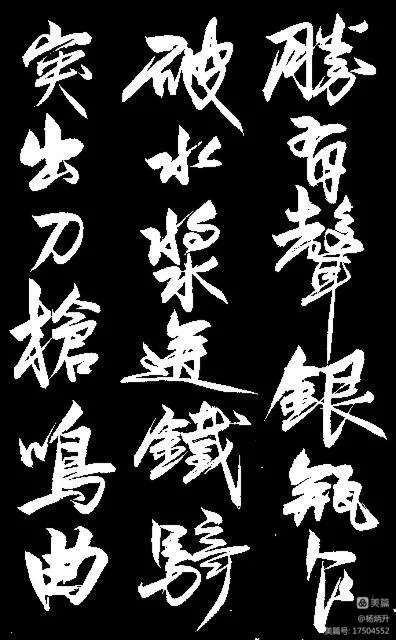 勝有聲銀瓶乍
破水漿迸鐵騎
突出刀槍鳴曲
美篇
@杨炳升
美篇号:17504552